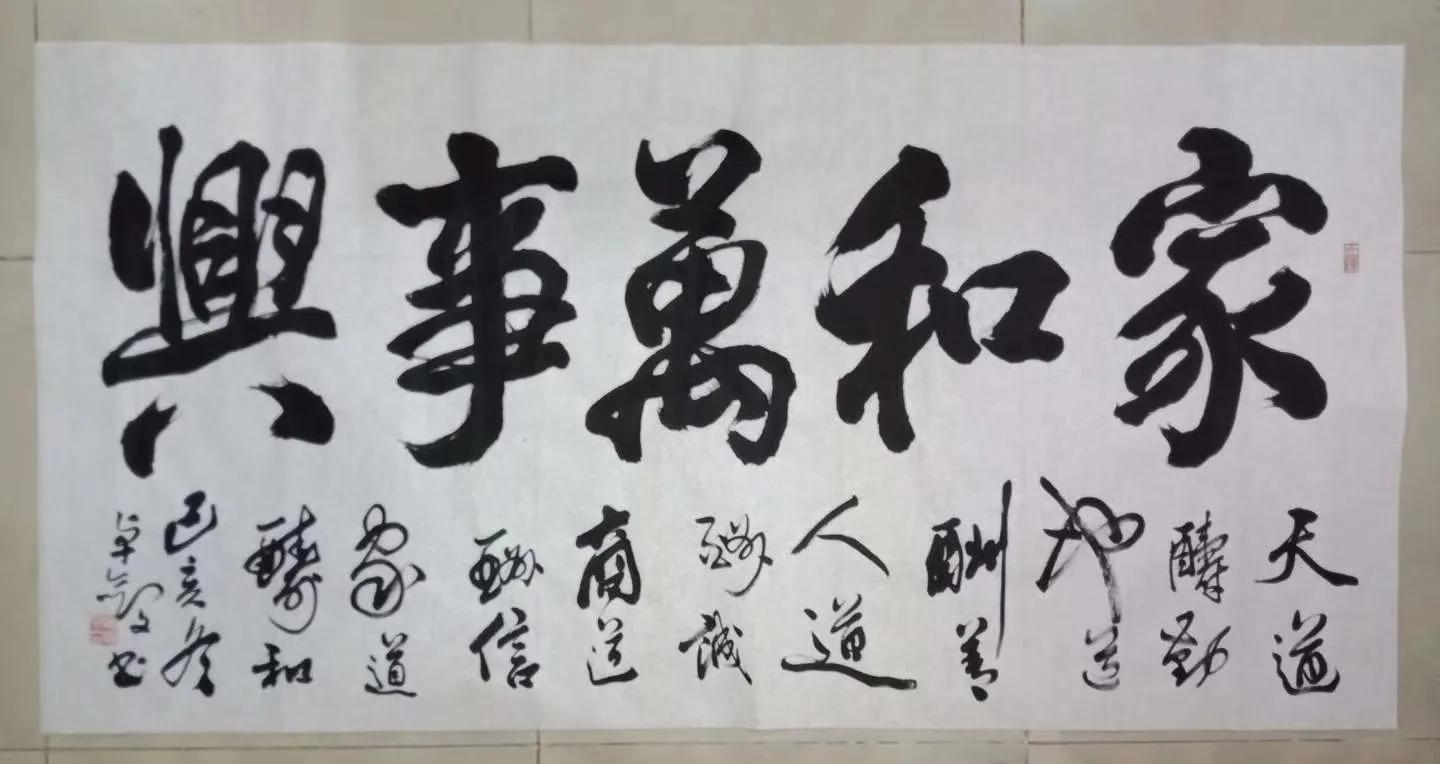 家和萬事興
天道
醻勤
地道
酬善
人道
酬誠
商道
酬信
家道
醻和
己亥冬
卓 书